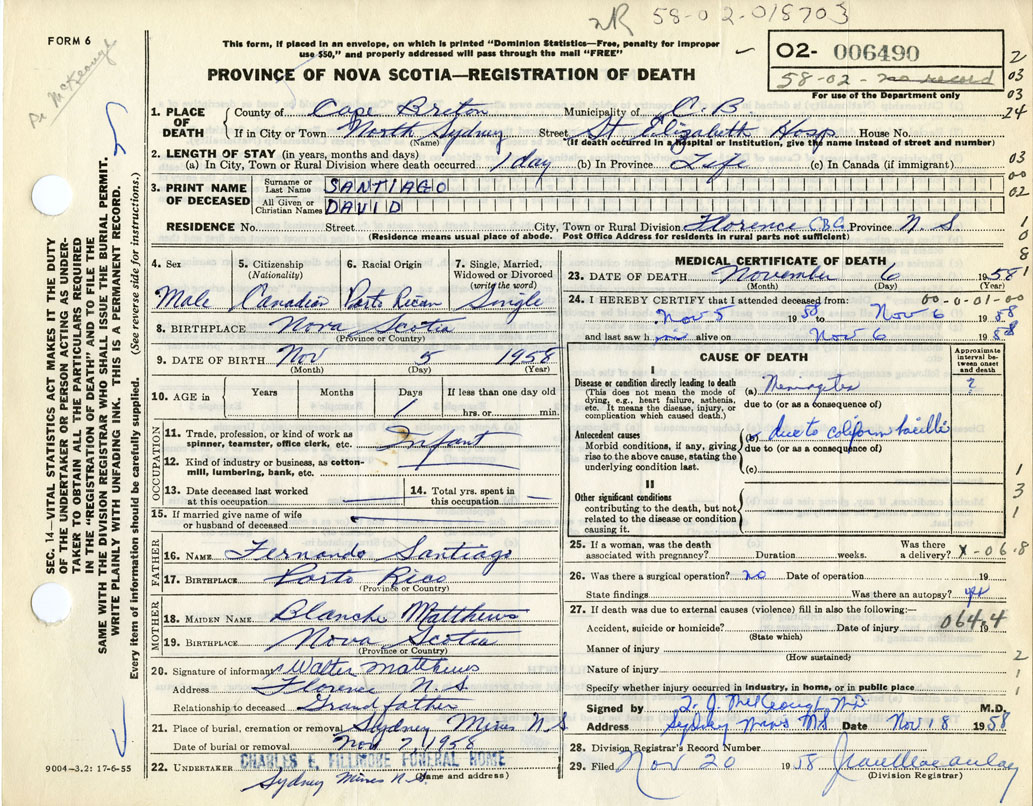 58-02-018703
FORM 6
Dr McKeough
This form, if placed in an envelope, on which is printed "Dominion Statistics—Free, penalty for improper
use $50," and properly addressed will pass through the mail "FREE"
02- 006490
58-02- no record
For use of the Department only
PROVINCE OF NOVA SCOTIA—REGISTRATION OF DEATH
2
03
03
24
03
00
02
1
0
8
1
1. PLACE OF DEATH
County of Cape Breton Municipality of C.B
If in City or Town North Sydney Street St Elizabeth Hosp House No.
(Name) (If death occurred in a Hospital or Institution, give the name instead of street and number)
2. LENGTH OF STAY (in years, months and days)
(a) In City, Town or Rural Division where death occurred 1 day (b) In Province Life (c) In Canada (if immigrant)
3. PRINT NAME OF DECEASED
Surname or Last Name SANTIAGO
All Given or Christian Names DAVID
RESIDENCE No. Street City, Town or Rural Division Florence C.B.C. Province N.S.
(Residence means usual place of abode. Post Office Address for residents in rural parts not sufficient)
SEC. 14—VITAL STATISTICS ACT MAKES IT THE DUTY
OF THE UNDERTAKER OR PERSON ACTING AS UNDER-
TAKER TO OBTAIN ALL THE PARTICULARS REQUIRED
IN THE "REGISTRATION OF DEATH" AND TO FILE THE
SAME WITH THE DIVISION REGISTRAR WHO SHALL ISSUE THE BURIAL PERMIT.
WRITE PLAINLY WITH UNFADING INK. THIS IS A PERMANENT RECORD.
Every item of information should be carefully supplied. (See reverse side for instructions.)
4. Sex
Male
5. Citizenship
(Nationality)
Canadian
6. Racial Origin
Porto Rican
7. Single, Married,
Widowed or Divorced
(write the word)
Single
8. BIRTHPLACE Nova Scotia
(Province or Country)
9. DATE OF BIRTH Nov 5 1958
(Month) (Day) (Year)
10. AGE in
Years Months Days If less than one day old
1 hrs. or min.
OCCUPATION
11. Trade, profession, or kind of work as
spinner, teamster, office clerk, etc. Infant
12. Kind of industry or business, as cotton-
mill, lumbering, bank, etc.
13. Date deceased last worked
at this occupation
14. Total yrs. spent in
this occupation
15. If married give name of wife
or husband of deceased
FATHER
16. NAME Fernando Santiago
17. BIRTHPLACE Porto Rico
(Province or Country)
MOTHER
18. MAIDEN NAME Blanche Matthews
19. BIRTHPLACE Nova Scotia
(Province or Country)
20. Signature of informant Walter Matthews
Address Florence N.S.
Relationship to deceased Grandfather
21. Place of burial, cremation or removal Sydney Mines N S
Date of burial or removal Nov 7 1958
22. UNDERTAKER CHARLES E. FILLMORE FUNERAL HOME
Sydney Mines N.S. (Name and address)
9004—3.2: 17-6-55
MEDICAL CERTIFICATE OF DEATH
23. DATE OF DEATH November 6 1958
(Month) (Day) (Year)
24. I HEREBY CERTIFY that I attended deceased from: 00-0-01-00
Nov 5 1958 to Nov 6 1958
and last saw h im alive on Nov 6 1958
CAUSE OF DEATH
Approximate
interval be-
tween onset
and death
I
Disease or condition directly leading to death
(This does not mean the mode of
dying, e.g., heart failure, asthenia,
etc. It means the disease, injury, or
complication which caused death.)
(a) ?
due to (or as a consequence of)
Antecedent causes
Morbid conditions, if any, giving
rise to the above cause, stating the
underlying condition last.
(b) due to coliform bacilli
due to (or as a consequence of)
(c)
II
Other significant conditions
contributing to the death, but not
related to the disease or condition
causing it.
1
3
1
25. If a woman, was the death
associated with pregnancy? Duration weeks. Was there
a delivery? X-06.8
26. Was there a surgical operation? no Date of operation 19
State findings Was there an autopsy? yes
27. If death was due to external causes (violence) fill in also the following:—
064.4
Accident, suicide or homicide? Date of injury 19
(State which)
Manner of injury 2
(How sustained)
Nature of injury 1
Specify whether injury occurred in industry, in home, or in public place 1
Signed by J. McKeough M.D. M.D.
Address Sydney Mines N.S. Date Nov 18 1958
28. Division Registrar's Record Number
29. Filed Nov 20 1958
(Division Registrar)